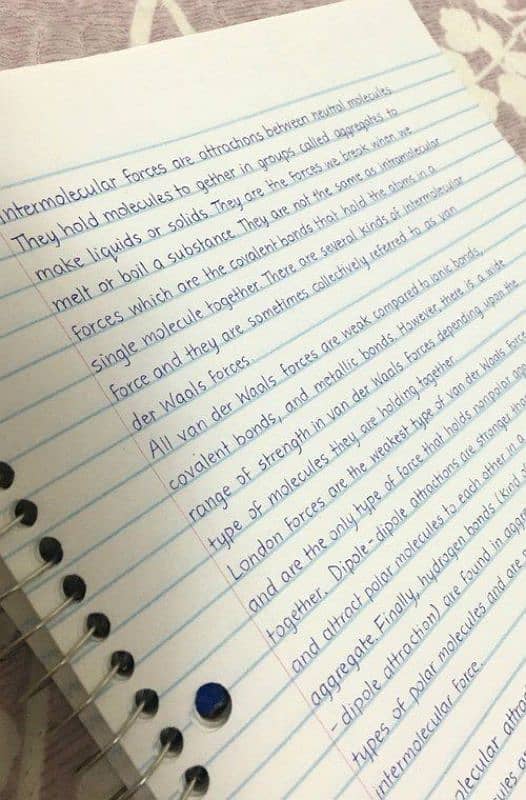 Intermolecular forces are attractions between neutral molecules
They hold molecules to gether in groups called aggregates to
make liquids or solids They are the forces we break when we
melt or boil a substance They are not the same as intramolecular
forces which are the covalent bonds that hold the atoms in a
single molecule together. There are several kinds of intermolecular
force and they are sometimes collectively referred to as van
der Waals forces.
All van der Waals forces are weak compared to ionic bonds,
covalent bonds, and metallic bonds. However, there is a wide
range of strength in van der Waals forces depending upon the
type of molecules they are holding together
London forces are the weakest type of van der Waals force
and are the only type of force that holds nonpolar
together. Dipole-dipole attractions are stronger
and attract polar molecules to each other in a
aggregate. Finally, hydrogen bonds (kind
-dipole attraction) are found in
types of polar molecules and are
intermolecular force.